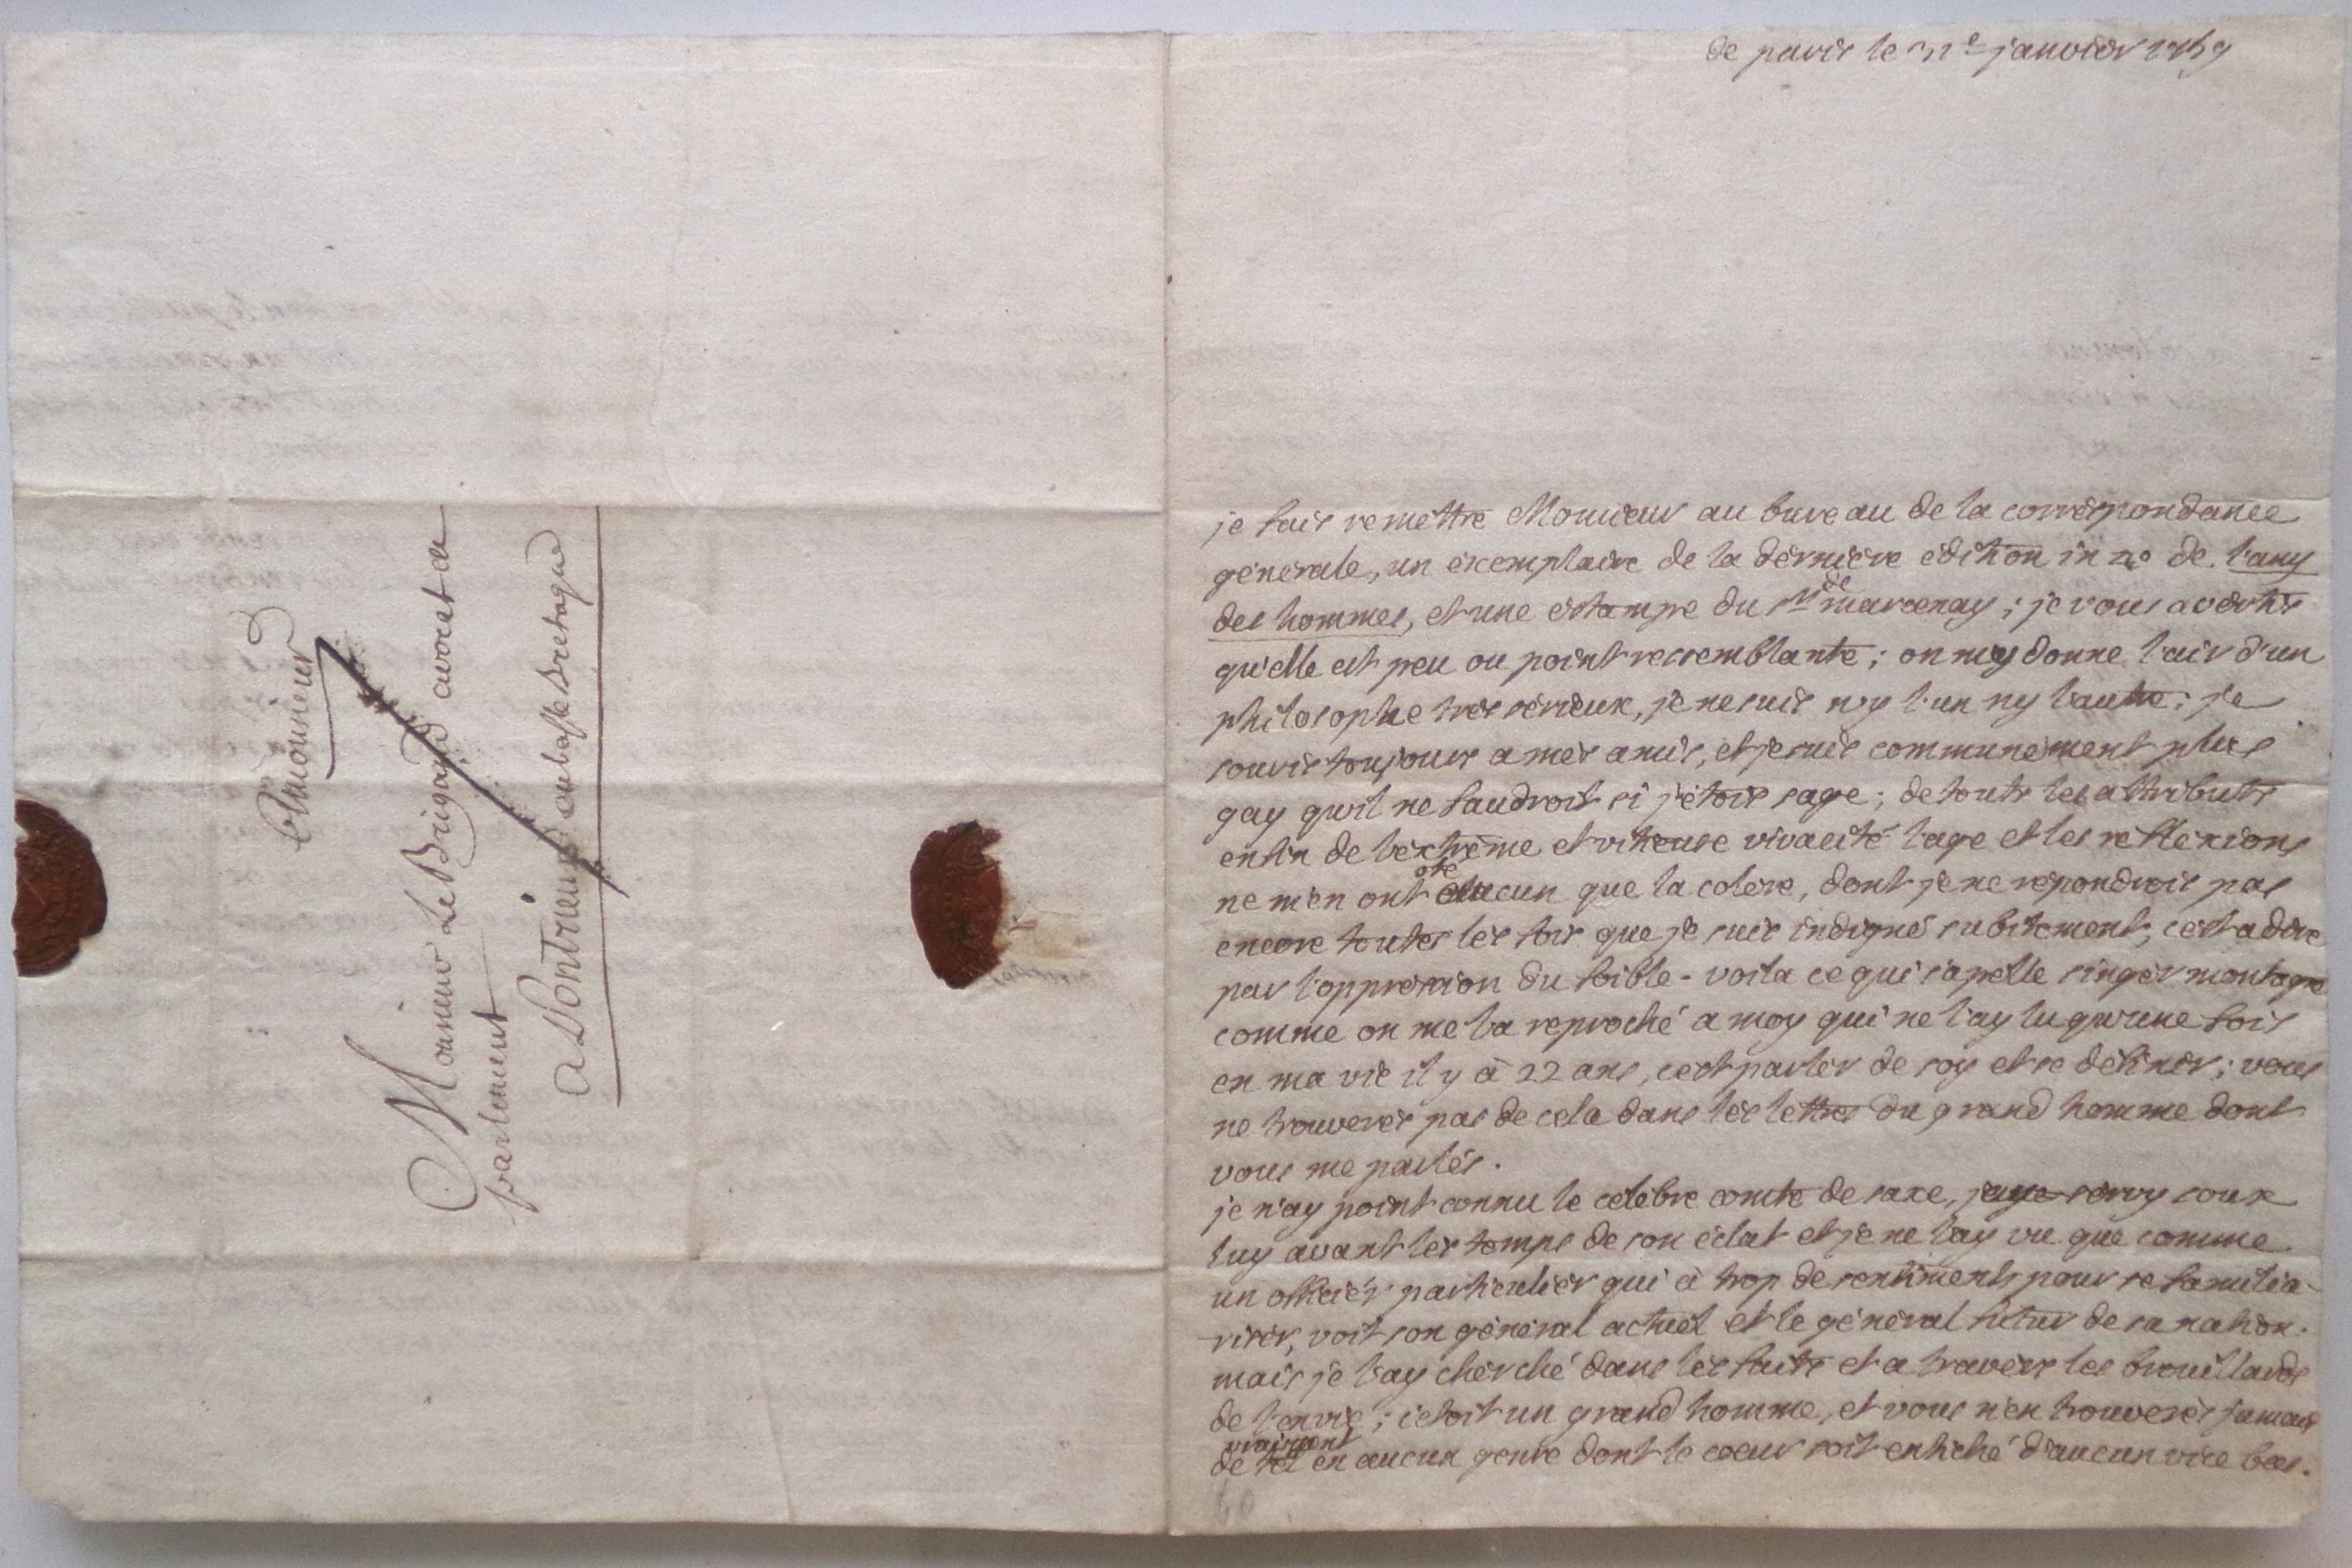 A Monsieur
Monsieur Le Brigand avocat au
parlement
a Pontrieux en basse Bretagne
de paris le janvier 1759
je fais remettre Monsieur au bureau de la correspondance
generale, un exemplaire de la dernière édition in 4° de l'amy
des hommes, et une estampe du Sr de marcenay; je vous avertis
qu'elle est peu ou point ressemblante; on my donne l'air d'un
philosophe très sérieux, je ne suis ny l'un ny l'autre; je
souris toujours a mes amis, et je suis communément plus
gay qu'il ne faudroit si j'étois sage; de touts les attributs
enfin de l'extrème et viteuse vivacité l'age et les reflexions
ne m'en ont oté aucun que la colère, dont je ne repondrois pas
encore toutes les fois que je suis indigné subitement, c'est a dire
par l'oppression du foible - voila ce qui s'apelle singer montagne
comme on me l'a reproché a moy qui ne l'ay lu qu'une fois
en ma vie il y à 22 ans, c'est parler de soy et se définir; vous
ne trouverés pas de cela dans les lettres du grand homme dont
vous me parlés.
je n'ay point connu le celebre comte de saxe, j'aye servy soux
luy avant les temps de son éclat et je ne l'ay vu que comme
un officiér particuliér qui à trop de sentiments pour se familia-
risér, voit son général actuel et le général futur de sa nation.
mais je l'ay cherché dans les faits et a travers les brouillards
de l'envie; c'étoit un grand homme, et vous n'en trouverés jamais
vraiment
de tel en aucun genre dont le coeur soit entiché d'aucun vice bas.